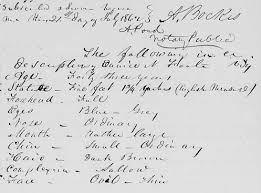 Subscribed & Sworn before
me this 21st day of July 186
A. Beckis
Notary Public
The following is a
Description
Age Forty three years
Stature Five feet (English Measure)
Forehead - Full
Eyes Blue - Grey
Nose - Ordinary
Mouth - Rather large
Chin - Small - Ordinary
Hair - Dark Brown
Complexion - Sallow
Face - Oval - Thin